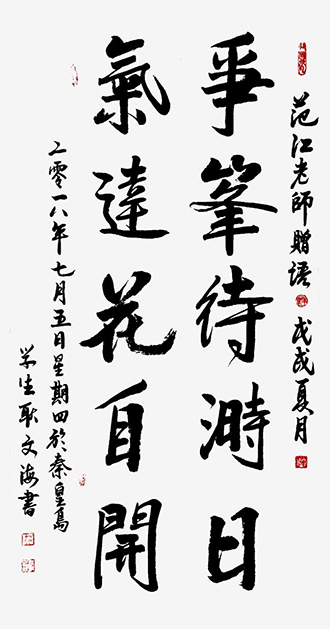 范江老師贈語 戊戌夏月
爭峯待溡日
氣達花自開
二零一八年七月五日星期四於秦皇島
学生耿文海書